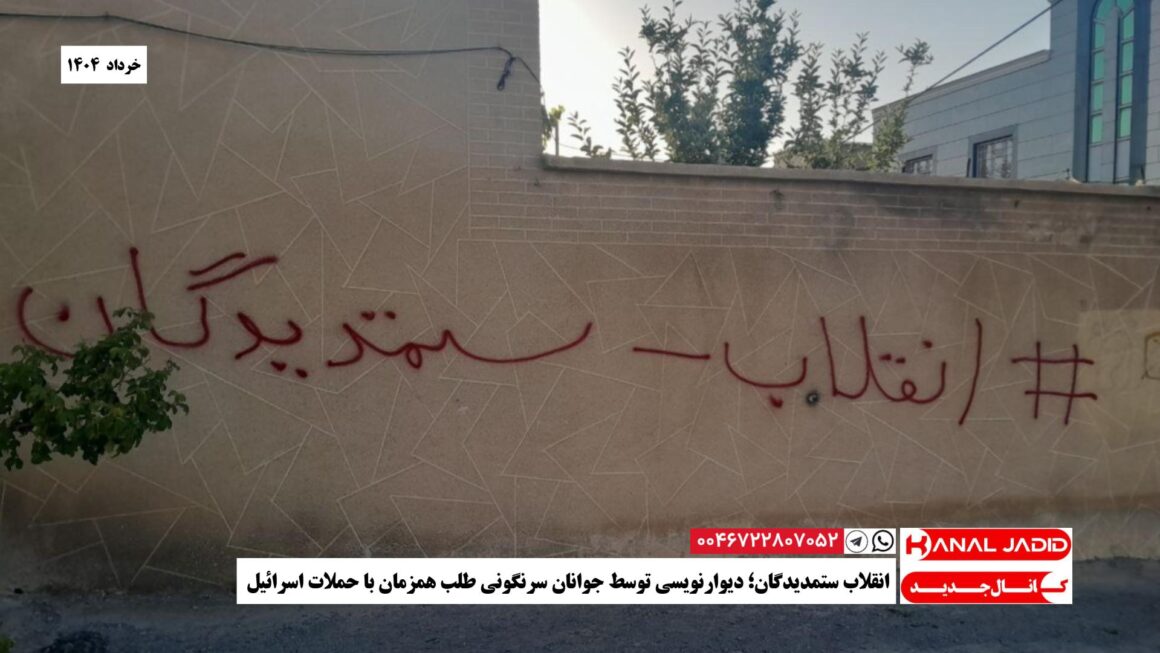 خرداد ۱۴۰۴
# انقلاب - ستمدیدگان
۰۰۴۶۷۲۲۸۰۷۰۵۲
KANAL JADID
کانال جدید
انقلاب ستمدیدگان؛ دیوارنویسی توسط جوانان سرنگونی طلب همزمان با حملات اسرائیل